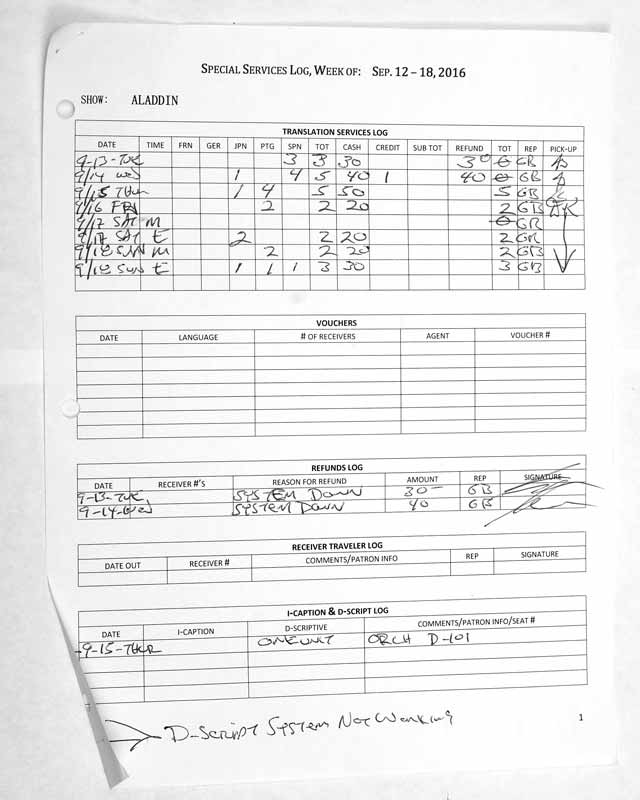 SPECIAL SERVICES LOG, WEEK OF: SEP. 12 – 18, 2016
SHOW: ALADDIN
TRANSLATION SERVICES LOG
DATE TIME FRN GER JPN PTG SPN TOT CASH CREDIT SUB TOT REFUND TOT REP PICK-UP
9-13-TUE 3 3 30 30 0 GB
9/14 WED 1 4 5 40 1 40 0 GB
9/15 THUR 1 4 5 50 5 GB
9/16 FRI 2 2 20 2 GB
9/17 SAT M 0 GB
9/17 SAT E 2 2 20 2 GB
9/18 SUN M 2 2 20 2 GB
9/18 SUN E 1 1 1 3 30 3 GB
VOUCHERS
DATE LANGUAGE # OF RECEIVERS AGENT VOUCHER #
REFUNDS LOG
DATE RECEIVER #'S REASON FOR REFUND AMOUNT REP SIGNATURE
9-13-TUE SYSTEM DOWN 30- GB
9-14-WED SYSTEM DOWN 40 GB
RECEIVER TRAVELER LOG
DATE OUT RECEIVER # COMMENTS/PATRON INFO REP SIGNATURE
I-CAPTION & D-SCRIPT LOG
DATE I-CAPTION D-SCRIPTIVE COMMENTS/PATRON INFO/SEAT #
9-15-THUR ONE UNIT ORCH D-101
D-SCRIPT SYSTEM NOT WORKING
1